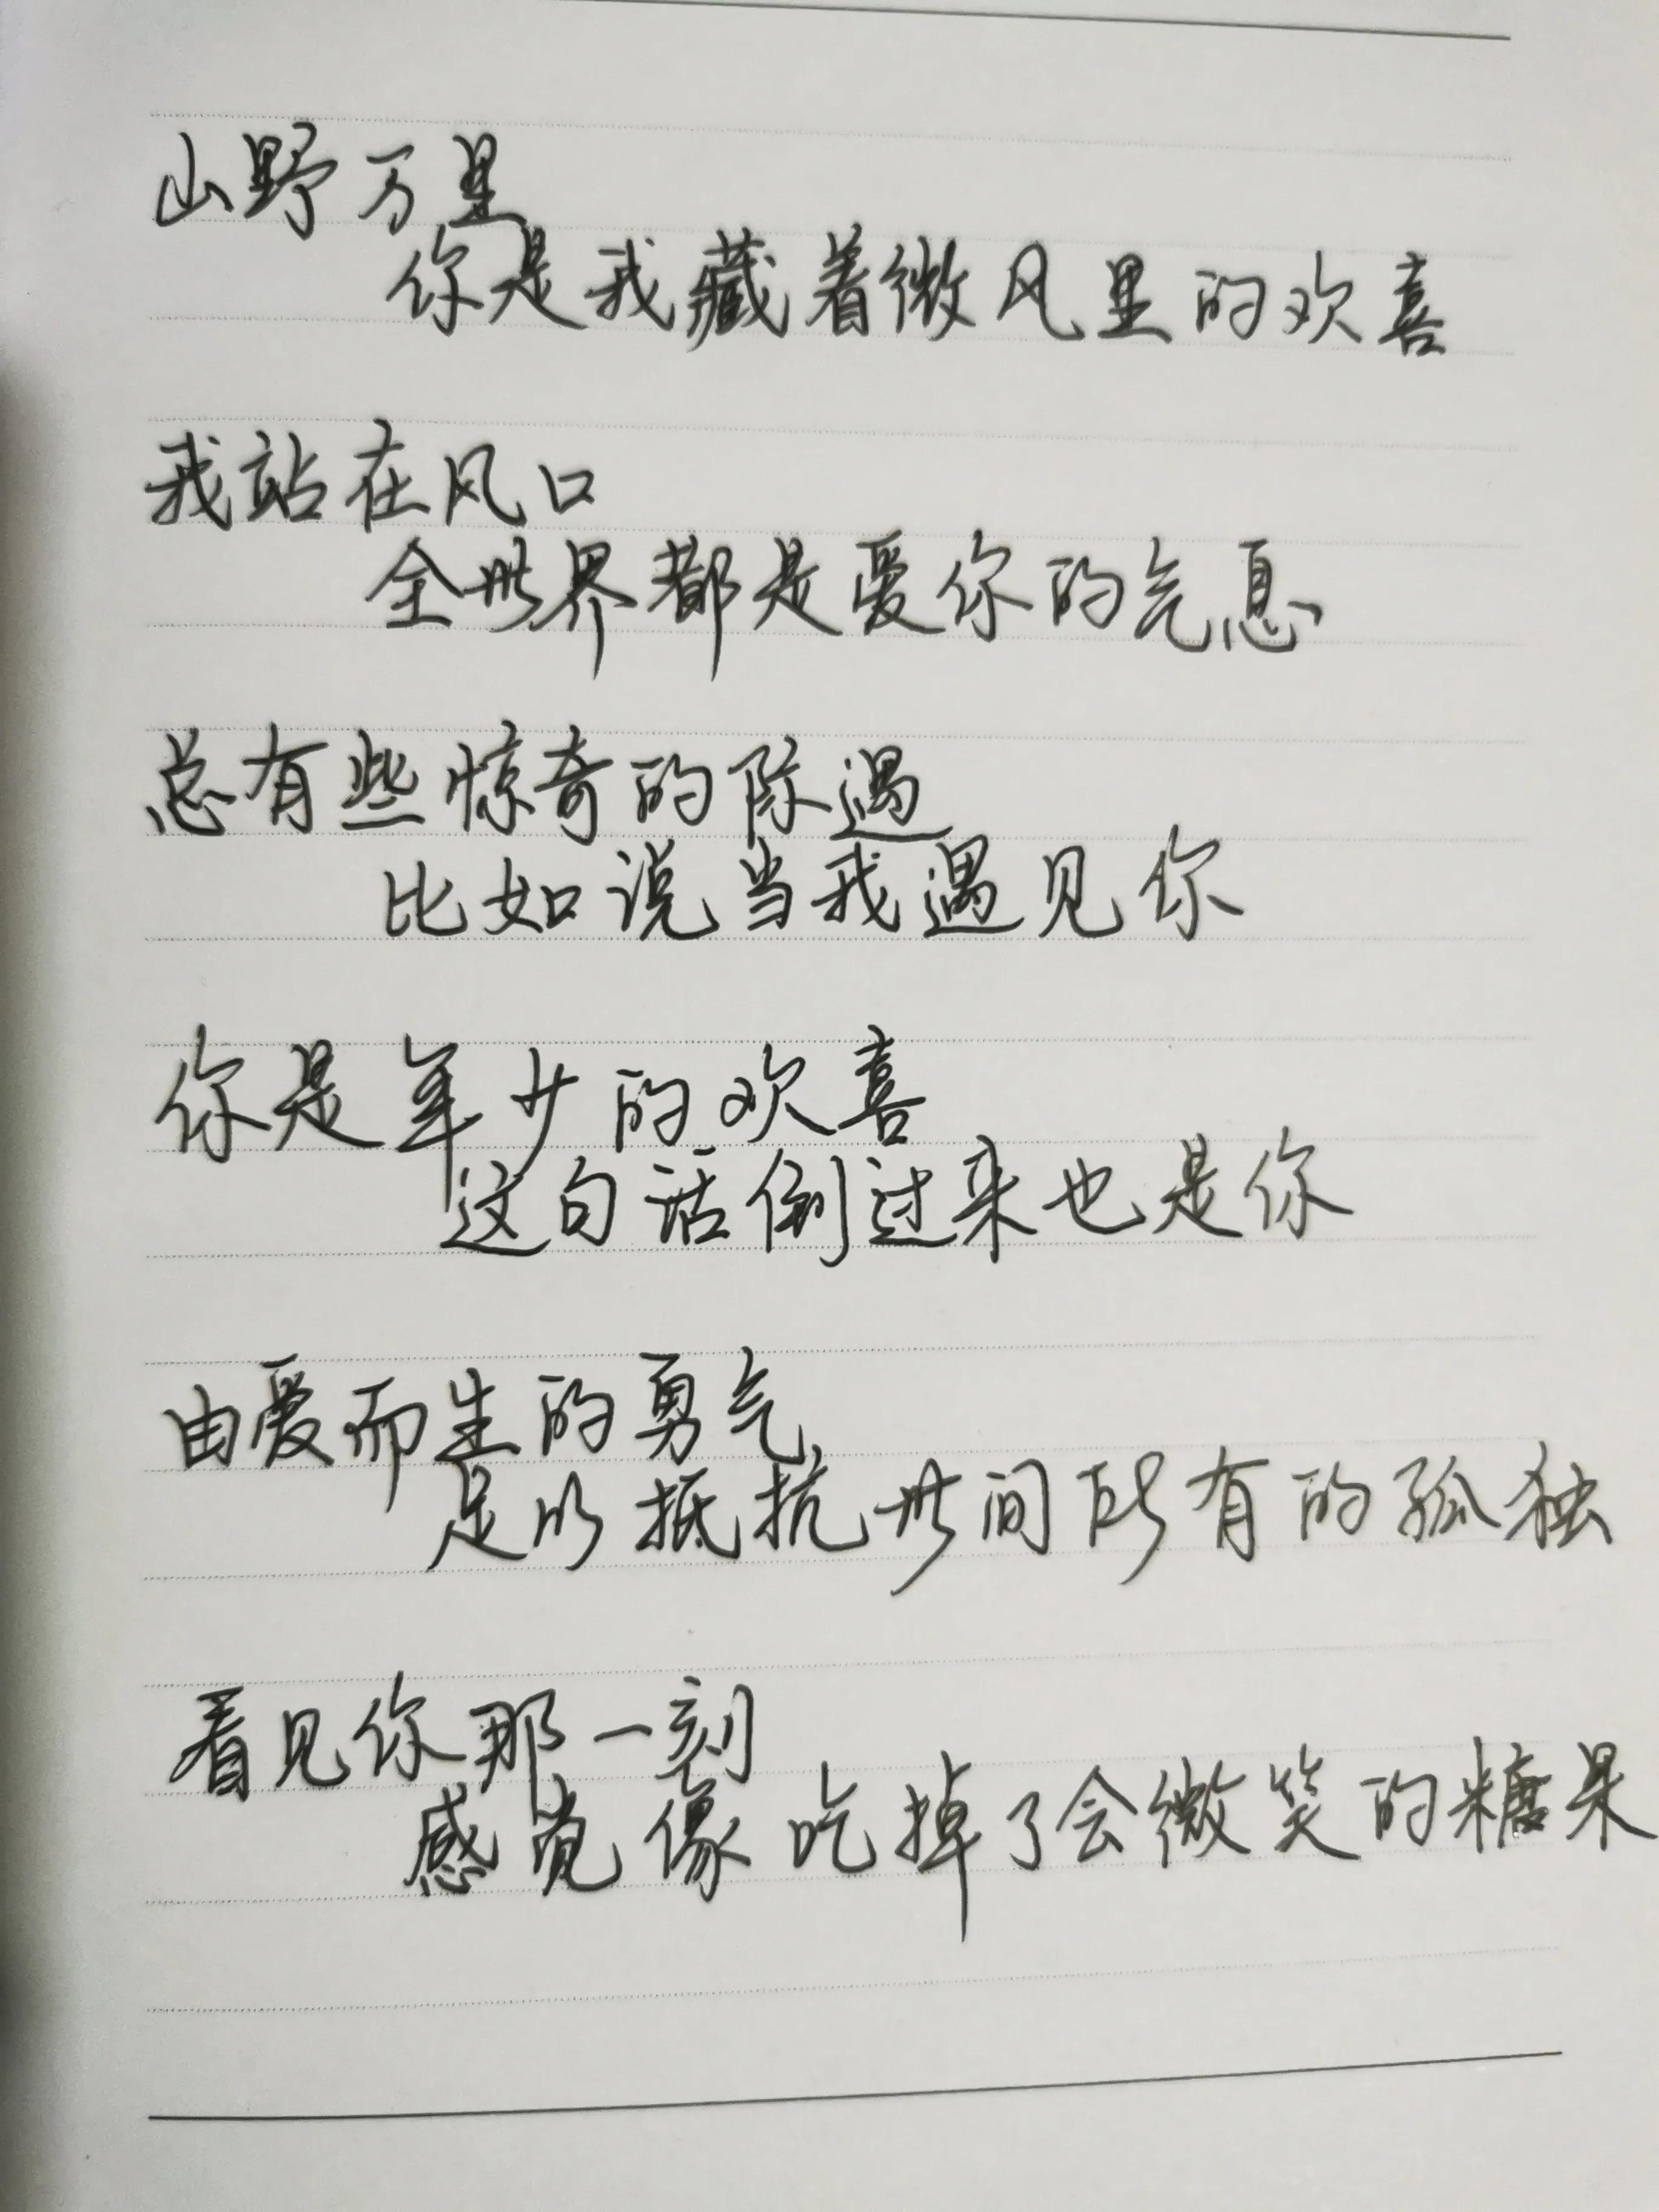 山野万里
你是我藏着微风里的欢喜
我站在风口
全世界都是爱你的气息
总有些惊奇的际遇
比如说当我遇见你
你是年少的欢喜
这句话倒过来也是你
由爱而生的勇气
足以抵抗世间所有的孤独
看见你那一刻
感觉像吃掉了会微笑的糖果